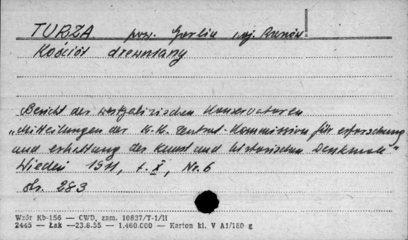 TURZA pow. Gorlice woj. Rzesz.
Kościół drewniany
Bericht der westgalizischen Konservatoren
"Mitteilungen der K.K. Zentral-Kommission für erforschung
und erhaltung der Kunst und historischen Denkmale"
Wiedeń 1911, t. X, No. 6
str. 283
Wzór Kb-156 — CWD, zam. 10637/T-1/II
2445 — Łak — 23.6.55 — 1.460.000 — Karton kl. V A1/180 g